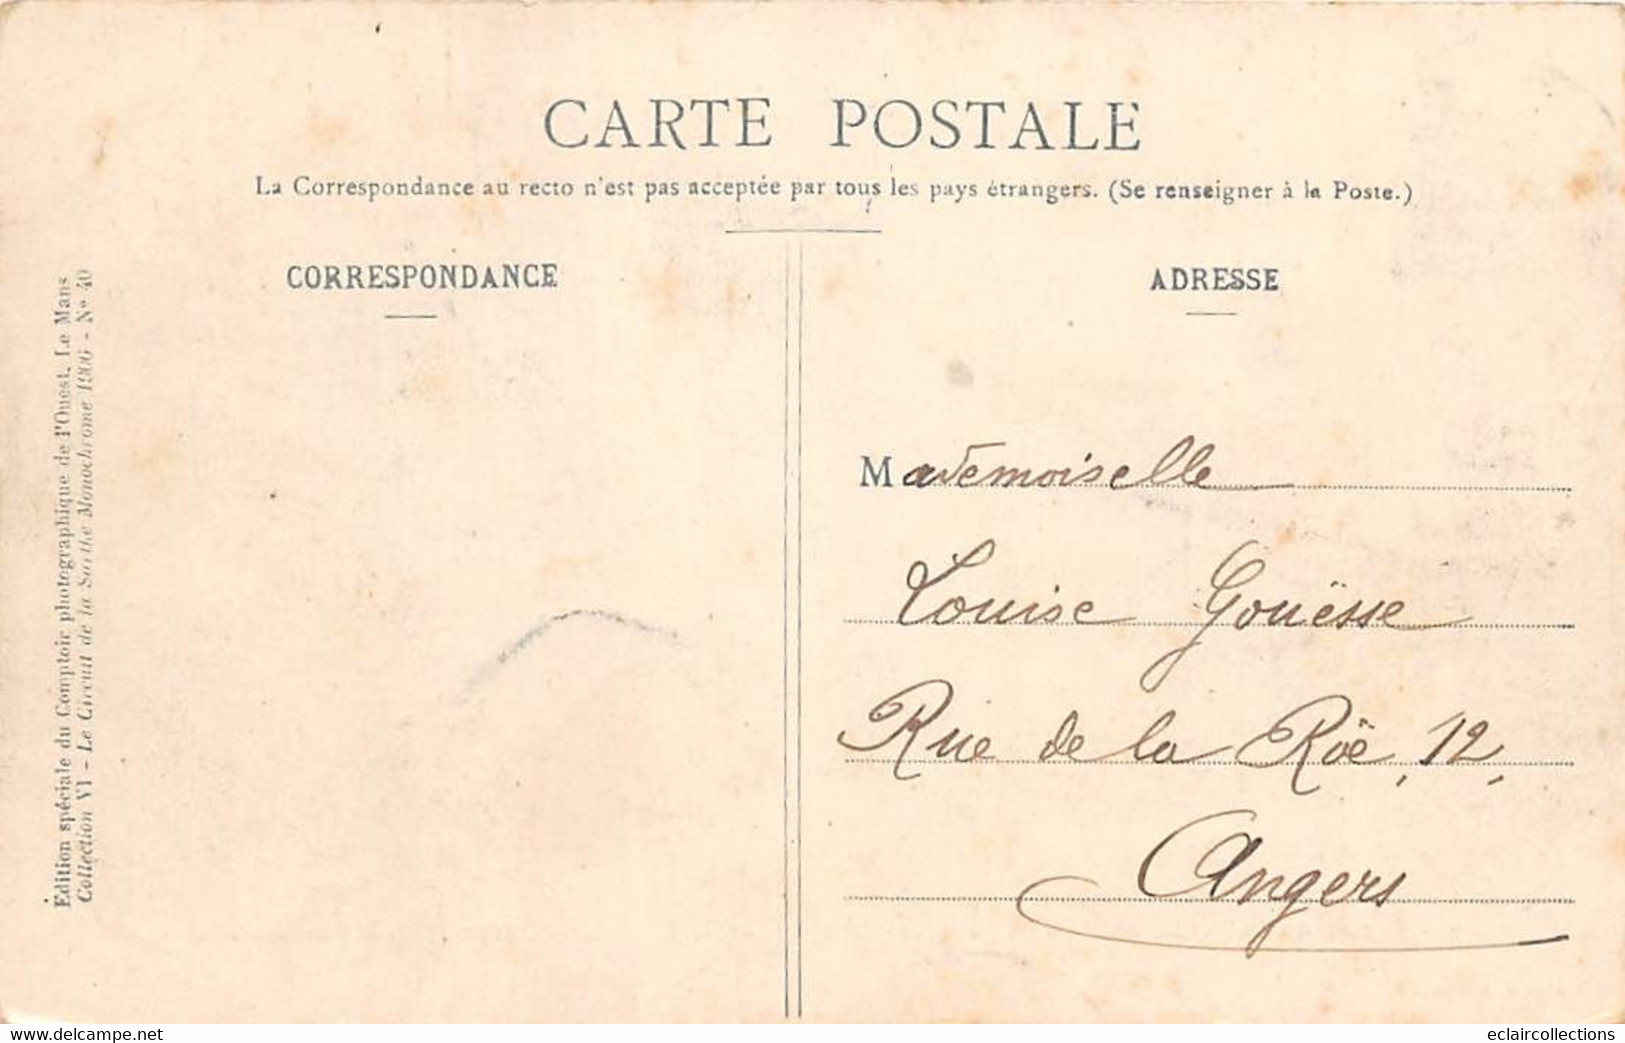 CARTE POSTALE
La Correspondance au recto n'est pas acceptée par tous les pays étrangers. (Se renseigner à la Poste.)
CORRESPONDANCE
ADRESSE
Édition spéciale du Comptoir photographique de l'Ouest, Le Mans
Collection VI - Le Circuit de la Sarthe Monochrome 1906 - N° 40
Mademoiselle
Louise Gouësse
Rue de la Roë, 12,
Angers
www.delcampe.net
eclaircollections